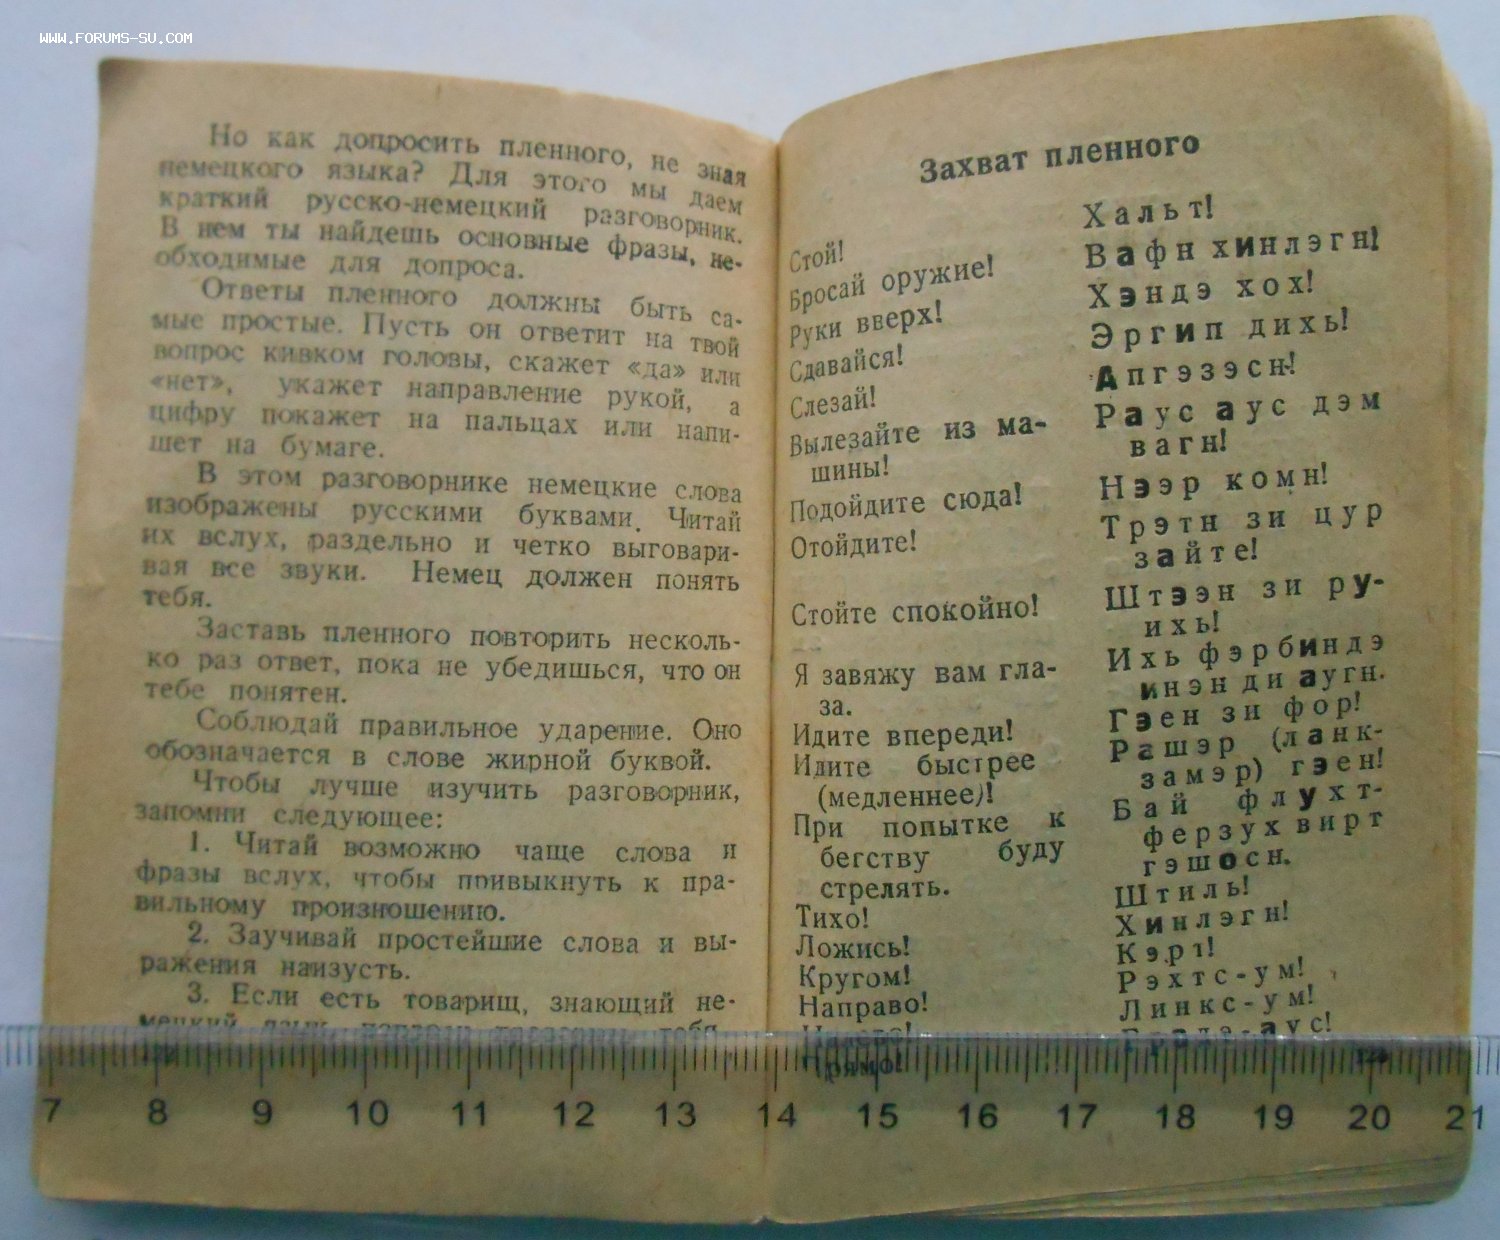 WWW.FORUMS-SU.COM
Но как допросить пленного, не зная
немецкого языка? Для этого мы даем
краткий русско-немецкий разговорник.
В нем ты найдешь основные фразы, не-
обходимые для допроса.
Ответы пленного должны быть са-
мые простые. Пусть он ответит на твой
вопрос кивком головы, скажет «да» или
«нет», укажет направление рукой, а
цифру покажет на пальцах или напи-
шет на бумаге.
В этом разговорнике немецкие слова
изображены русскими буквами. Читай
их вслух, раздельно и четко выговари-
вая все звуки. Немец должен понять
тебя.
Заставь пленного повторить несколь-
ко раз ответ, пока не убедишься, что он
тебе понятен.
Соблюдай правильное ударение. Оно
обозначается в слове жирной буквой.
Чтобы лучше изучить разговорник,
запомни следующее:
1. Читай возможно чаще слова и
фразы вслух, чтобы привыкнуть к пра-
вильному произношению.
2. Заучивай простейшие слова и вы-
ражения наизусть.
3. Если есть товарищ, знающий не-
мецкий язык, тебя
Захват пленного
Стой! Хальт!
Бросай оружие! Вафн хинлэгн!
Руки вверх! Хэндэ хох!
Сдавайся! Эргип дихь!
Слезай! Апгэзэсн!
Вылезайте из ма- Раус аус дэм
шины! вагн!
Подойдите сюда! Нээр комн!
Отойдите! Трэтн зи цур
зайте!
Стойте спокойно! Штээн зи ру-
ихь!
Я завяжу вам гла- Ихь фэрбиндэ
за. инэн ди аугн.
Идите впереди! Гэен зи фор!
Идите быстрее Рашэр (ланк-
(медленнее)! замэр) гэен!
При попытке к Бай флухт-
бегству буду ферзух вирт
стрелять. гэшосн.
Тихо! Штиль!
Ложись! Хинлэгн!
Кругом! Кэрт!
Направо! Рэхтс-ум!
Налево! Линкс-ум!
Прямо! Градэ-аус!
7 8 9 10 11 12 13 14 15 16 17 18 19 20 21